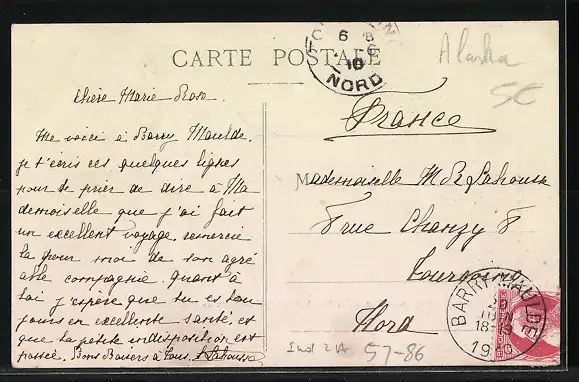 CARTE POSTALE
6
10
NORD
Alaska
5€
Chère Marie Rose.
Me voici à Barry Maulde.
je t'écris ces quelques lignes
pour te prier de dire à Ma
demoiselle que j'ai fait
un excellent voyage, remercie
la pour moi de son agré
able compagnie. Quant à
toi j'espère que tu es tou
jours en excellente santé, et
que ta petite indisposition est
passée. Bons Baisers à tous. Lahousse
France
Mademoiselle M R Lahousse
8 rue Chanzy 8
Tourcoing
Nord
BARRY-MAULDE
18-19
1910
57-86